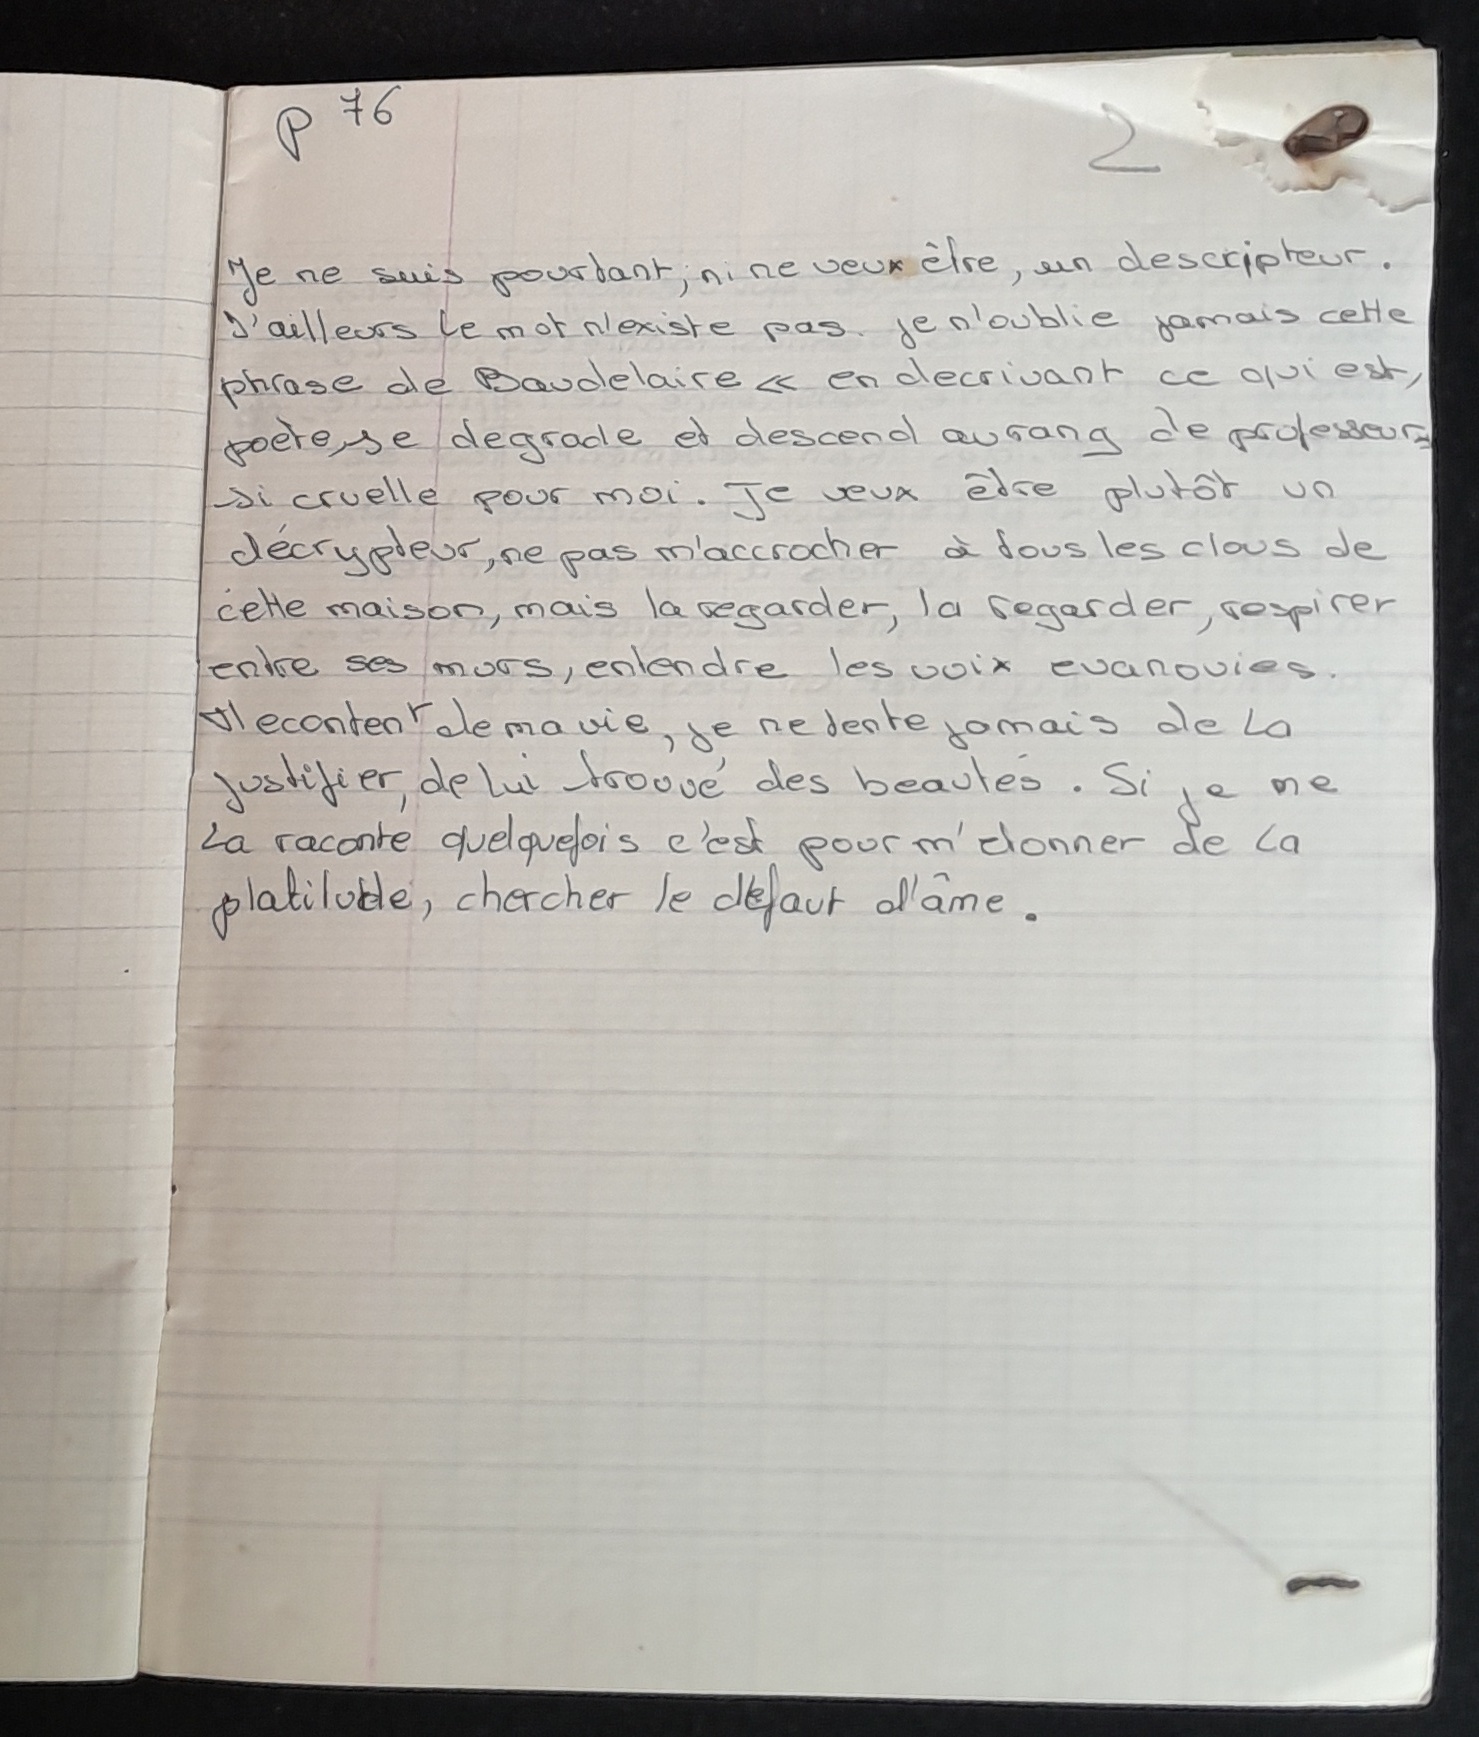 p 76
2
Je ne suis pourtant, ni ne veux être, un descripteur.
D'ailleurs le mot n'existe pas. je n'oublie jamais cette
phrase de Baudelaire « en decrivant ce qui est,
poète, se degrade et descend au rang de professeur »
si cruelle pour moi. Je veux être plutôt un
décrypteur, ne pas m'accrocher à tous les clous de
cette maison, mais la regarder, la regarder, respirer
entre ses murs, entendre les voix evanouies.
Mecontent de ma vie, je ne tente jamais de la
justifier, de lui trouvé des beautés. Si je me
la raconte quelquefois c'est pour m'donner de la
platitude, chercher le défaut d'âme.